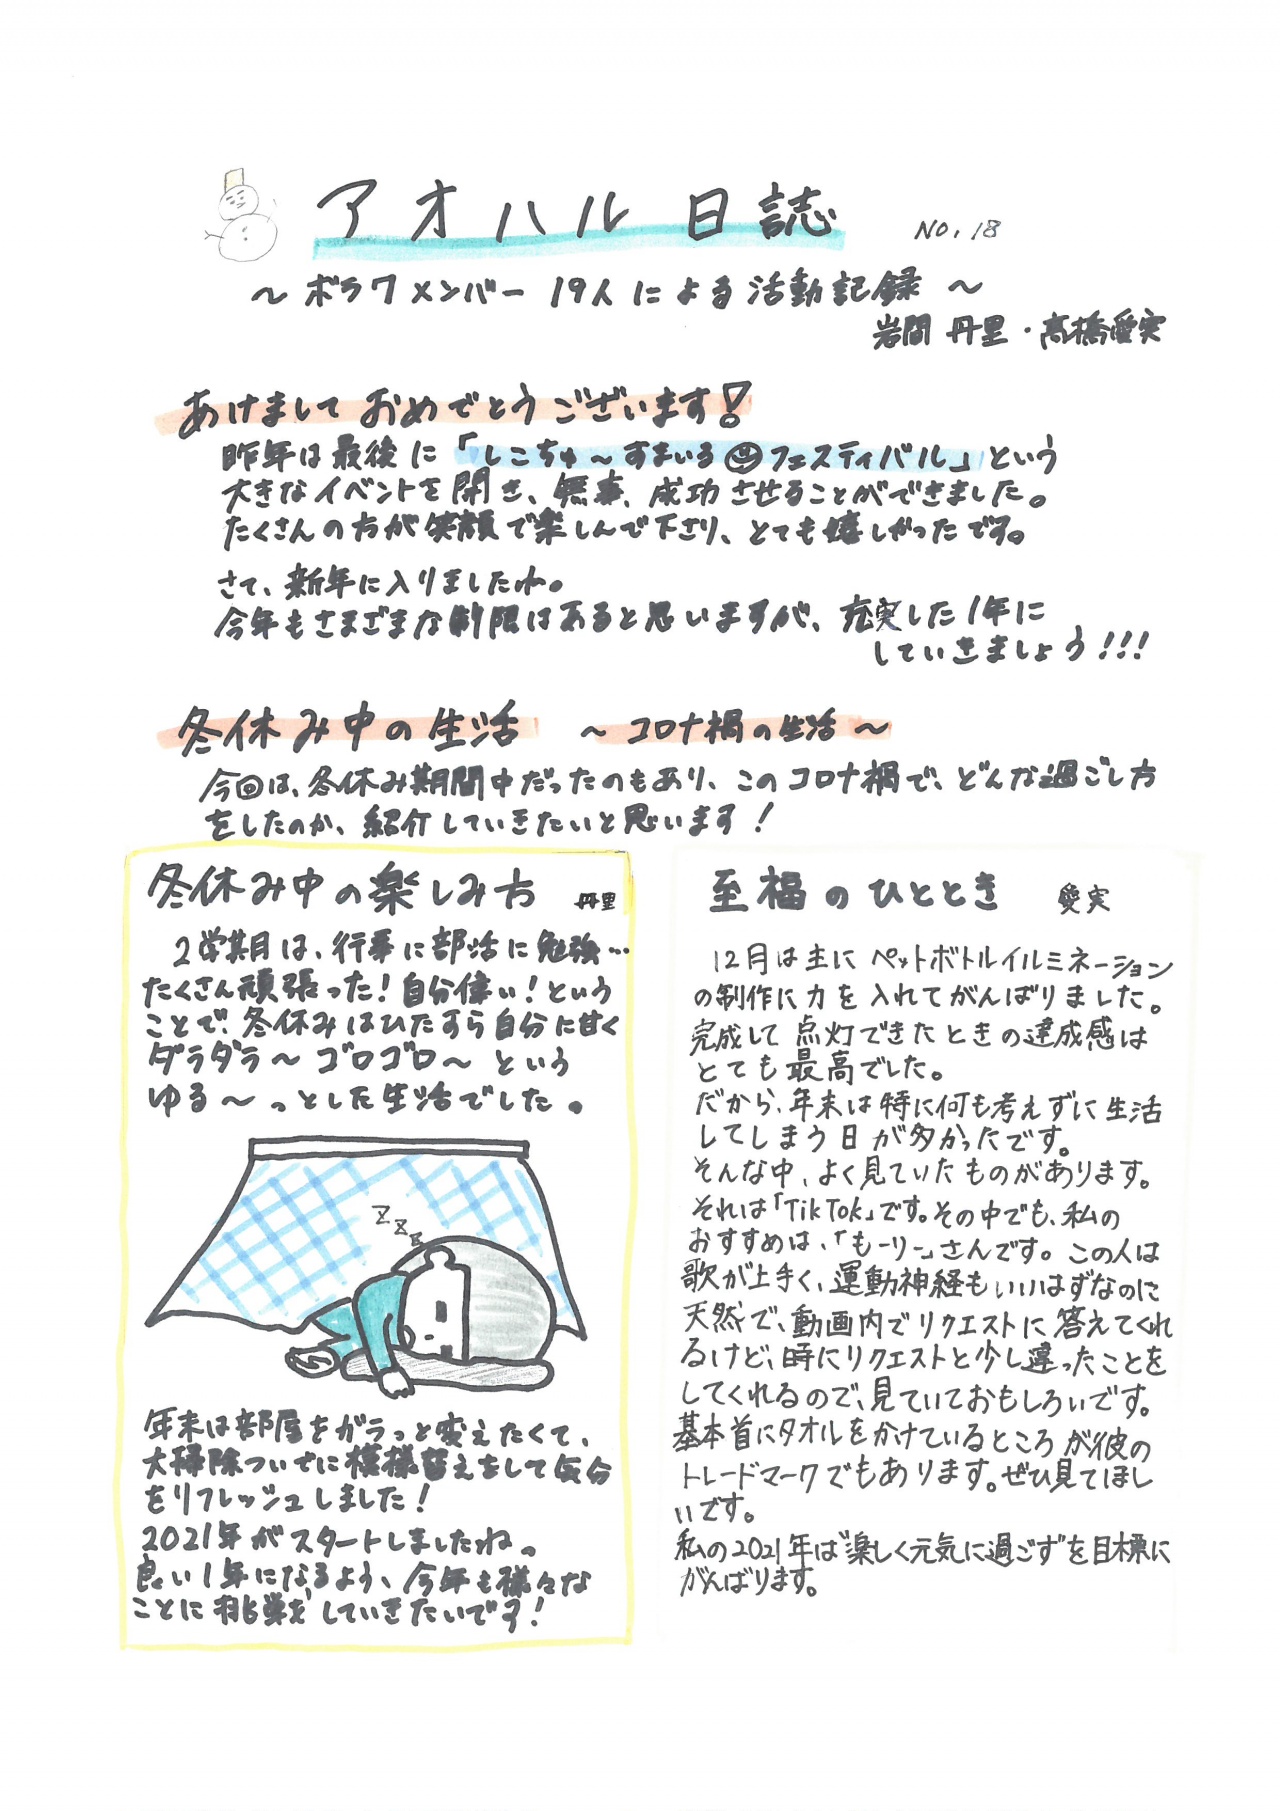 アオハル日誌 NO.18
～ボラワメンバー 19人による活動記録～
岩間 丹里・髙橋愛実
あけましておめでとうございます！
昨年は最後に「しこちゅ～すまいる☺フェスティバル」という
大きなイベントを開き、無事、成功させることができました。
たくさんの方が笑顔で楽しんで下さり、とても嬉しかったです。
さて、新年に入りましたね。
今年もさまざまな制限はあると思いますが、充実した1年に
していきましょう!!!
冬休み中の生活 ～コロナ禍の生活～
今回は、冬休み期間中だったのもあり、このコロナ禍で、どんな過ごし方
をしたのか、紹介していきたいと思います！
冬休み中の楽しみ方 丹里
2学期は、行事に部活に勉強…
たくさん頑張った！自分偉い！という
ことで、冬休みはひたすら自分に甘く
ダラダラ～ゴロゴロ～という
ゆる～っとした生活でした。
ZZZ
年末は部屋をガラっと変えたくて、
大掃除ついでに模様替えをして気分
をリフレッシュしました！
2021年がスタートしましたね。
良い1年になるよう、今年も様々な
ことに挑戦していきたいです！
至福のひととき 愛実
12月は主にペットボトルイルミネーション
の制作に力を入れてがんばりました。
完成して点灯できたときの達成感は
とても最高でした。
だから、年末は特に何も考えずに生活
してしまう日が多かったです。
そんな中、よく見ていたものがあります。
それは「TikTok」です。その中でも、私の
おすすめは、「もーりー」さんです。この人は
歌が上手く、運動神経もいいはずなのに
天然で、動画内でリクエストに答えてくれ
るけど、時にリクエストと少し違ったことを
してくれるので、見ていておもしろいです。
基本首にタオルをかけているところが彼の
トレードマークでもあります。ぜひ見てほし
いです。
私の2021年は"楽しく元気に過ごす"を目標に
がんばります。